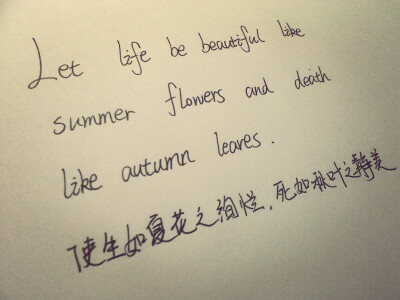 Let life be beautiful like
summer flowers and death
like autumn leaves.
使生如夏花之绚烂，死如秋叶之静美